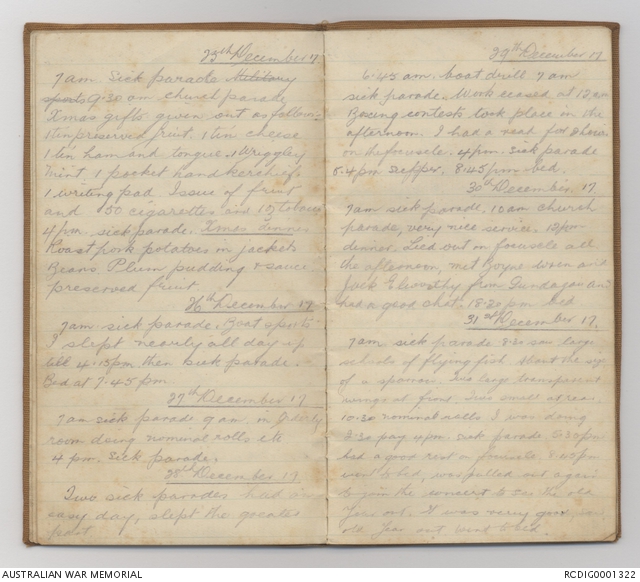 25th December 17
7am Sick parade Military
sports 9.30 am church parade
Xmas gifts given out as follows
1 tin preserved fruit. 1 tin cheese
1 tin ham and tongue. 1 Wriggley
Mint. 1 pocket handkerchief
1 writing pad Issue of fruit
and 50 cigarettes and tobacco
4 pm. sick parade. Xmas Dinner
Roast pork potatoes in jackets
Beans Plum pudding & sauce
preserved fruit
26th December 17
7am sick parade. Boat sports
I slept nearly all day up
till 4.15pm then sick parade.
Bed at 7.45 pm.
27th December 17
7am sick parade 9 am. in Orderly
room doing nominal rolls etc
4 pm. Sick parade.
28th December 17
Two sick parades had an
easy day, slept the greater
part
29th December 17
6.45 am. boat drill 7 am
sick parade. Work ceased at 12
Boxing contests took place in the
afternoon. I had a read for
on the focusele. 4pm. sick parade
5.4pm supper. 8.45pm bed.
30th December 17.
7am sick parade, 10am church
parade, very nice service. 12pm
dinner. Lied out on focusele all
the afternoon, met and
Jack from Gundagai and
had a good chat. bed
31st December 17.
7am sick parade 8.30 saw large
schools of flying fish about the size
of a sparrow. Two large transparent
wings at front. Two small at rear.
10.30 nominal rolls I was doing
2.30 pay 4pm. sick parade 5.30pm
had a good rest on focusele, 8.45pm
went to bed, was pulled out again
to join the concert to see the old
Year out. It was very good
old Year out went to bed.
AUSTRALIAN WAR MEMORIAL
RCDIG0001322